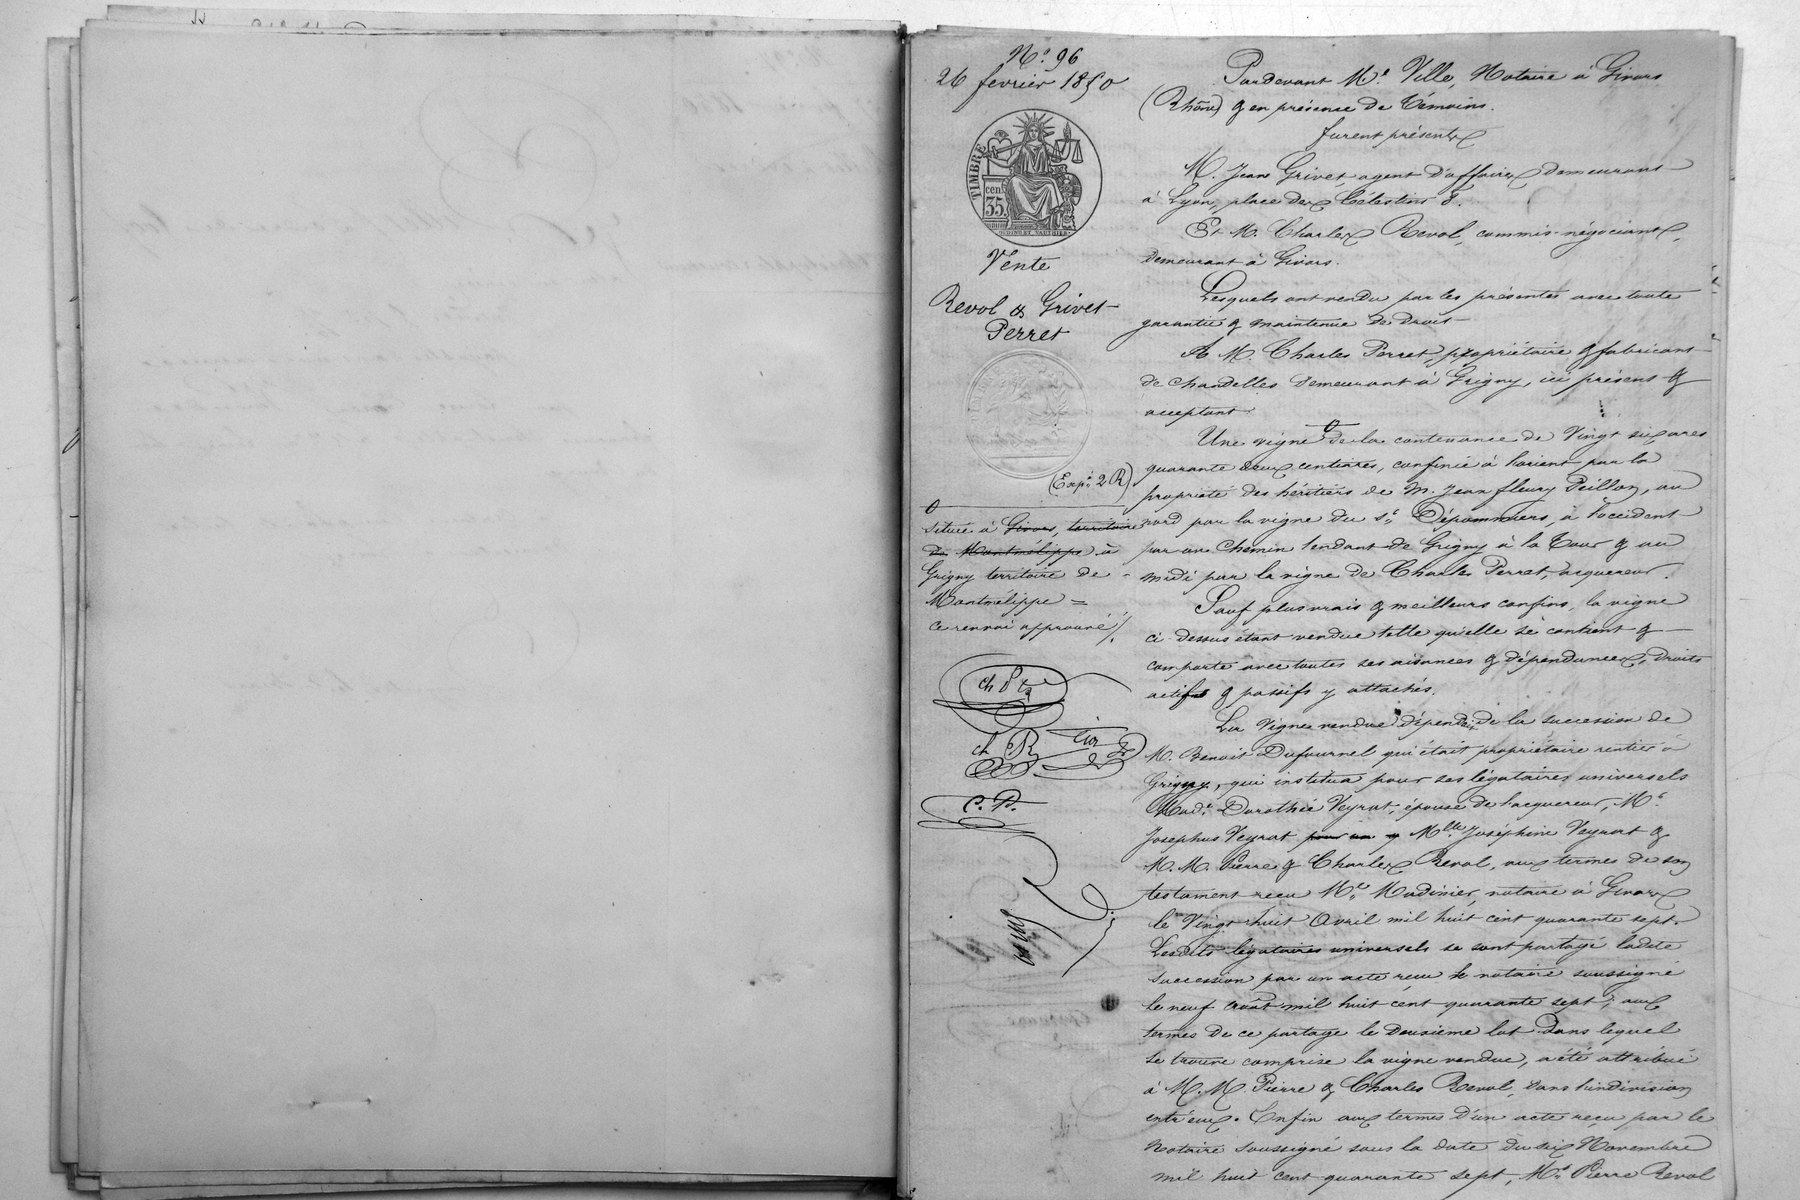 N.º 96
26 février 1850
TIMBRE
cen.
35.
Vente
Revol & Grivet
Perret
(Exp.on 2 R)
située à Givors, territoire
de Montmélippe à
Grigny territoire de
Montmélippe =
ce renvoi approuvé /.
ch R
C. P.
Pardevant M.e Ville, Notaire à Givors
(Rhône) & en présence de Témoins.
furent présents
M. Jean Grivet, agent d'affaires demeurant
à Lyon, place des Célestins 8.
Et M. Charles Revol, commis-négociant,
demeurant à Givors.
Lesquels ont vendu par les présentes avec toute
garantie & maintenue de droit
A M. Charles Perret, propriétaire & fabricant
de chandelles demeurant à Grigny, ici présent &
acceptant.
Une vigne de la contenance de Vingt six ares
quarante deux centiares, confinée à l'orient par la
propriété des héritiers de M. Jean fleury Peillon, au
nord par la vigne du s.r Dépommiers, à l'occident
par un chemin tendant de Grigny à la Tour & au
midi par la vigne de Charles Perret, acquereur.
Sauf plus vrais & meilleurs confins, la vigne
ci-dessus étant vendue telle qu'elle se contient &
comporte avec toutes ses aisances & dépendances, droits
actifs & passifs y attachés.
La Vigne vendue dépend de la succession de
M. Benoit Dufournel qui était propriétaire rentier à
Grigny, qui institua pour ses légataires universels
Mad.e Dorothée Veyrat, épouse de l'acquereur, M.r
Josephus Veyrat pour un y Mlle Joséphine Veyrat &
M. M. Pierre & Charles Revol, aux termes de son
testament reçu M.e Madinier, notaire à Givors
le Vingt huit Avril mil huit cent quarante sept.
Lesdits légataires universels se sont partagé ladite
succession par un acte reçu le notaire soussigné
le neuf août mil huit cent quarante sept; aux
termes de ce partage le deuxième lot dans lequel
se trouve comprise la vigne vendue, a été attribué
à M. M. Pierre & Charles Revol, dans l'indivision
entr'eux. Enfin aux termes d'un acte reçu par le
Notaire soussigné sous la date du six Novembre
mil huit cent quarante sept, M.r Pierre Revol